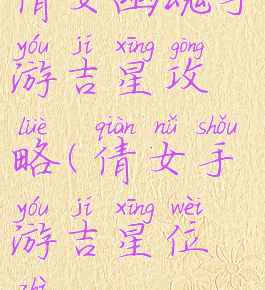 倩女幽魂手
yóu jí xīng gōng
游吉星攻
lüè qiàn nǚ shǒu
略(倩女手
yóu jí xīng wèi
游吉星位
zhì